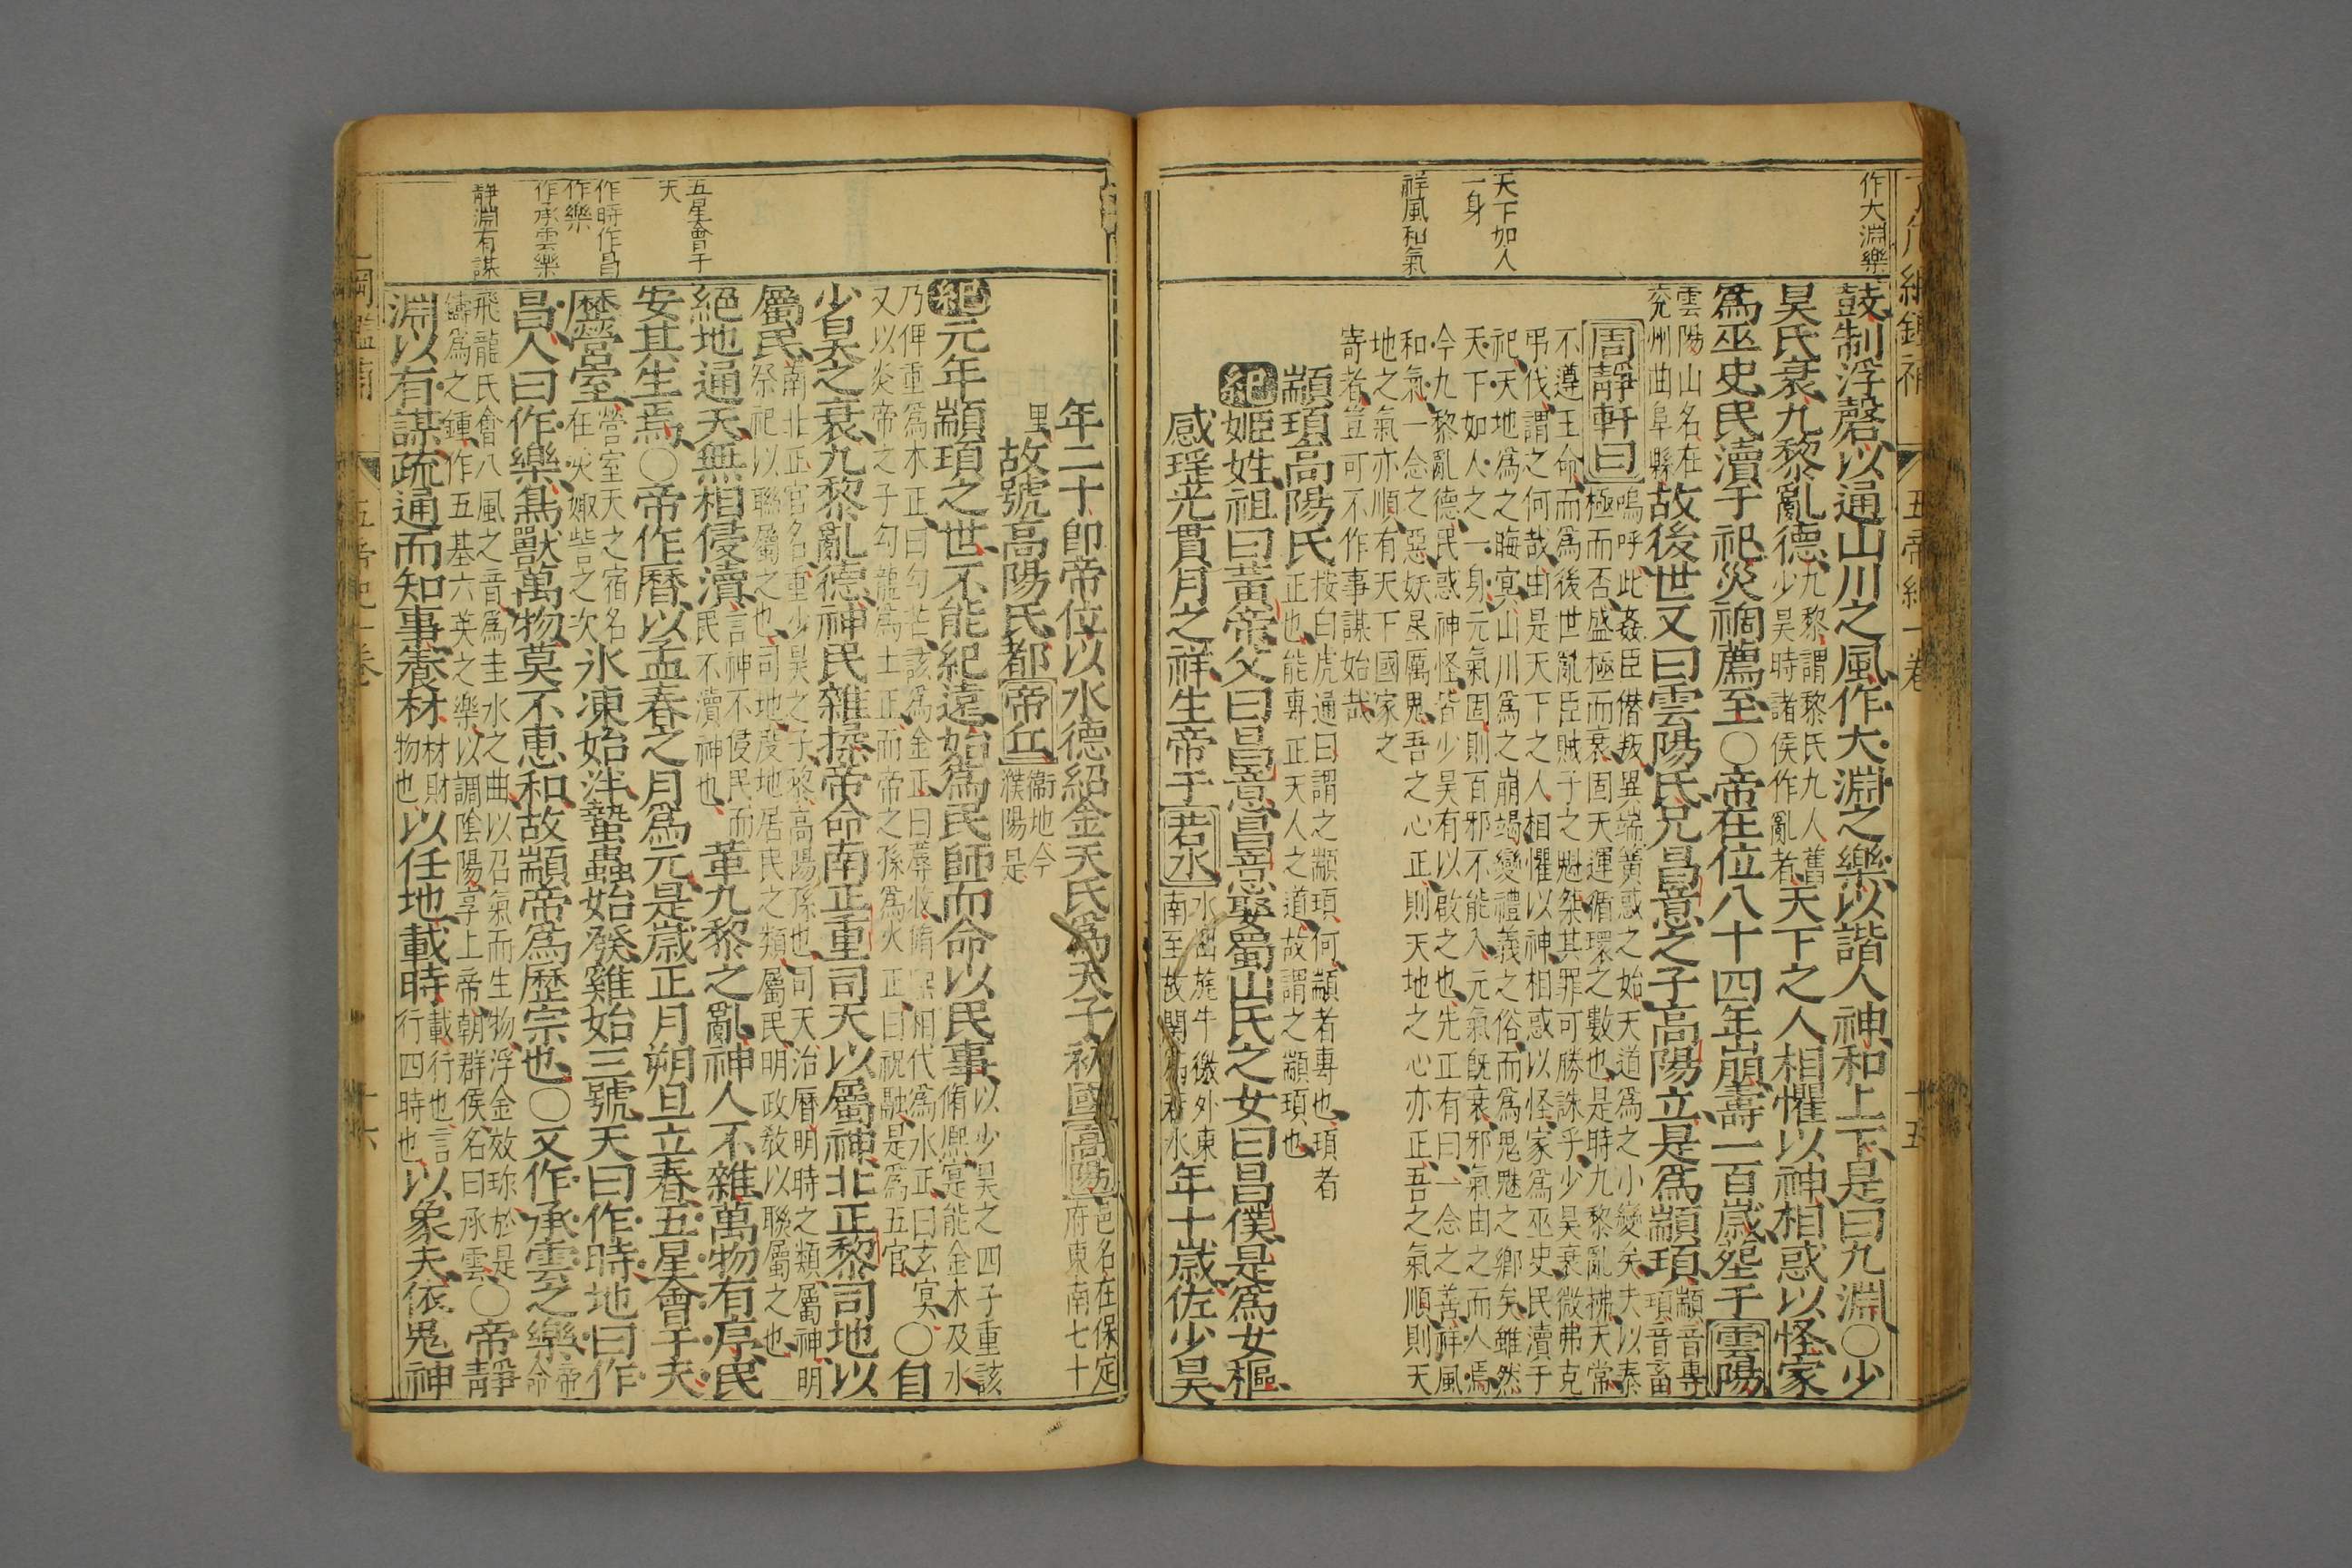 作大淵樂
鼓制浮磬以通山川之風作大淵之樂以諧人神和上下是曰九淵〇少
昊氏衰九黎亂德九黎謂黎氏九人舊少昊時諸侯作亂者天下之人相懼以神相惑以怪家
爲巫史民瀆于祀災禍薦至〇帝在位八十四年崩壽一百歲葬于雲陽
雲陽山名在兗州曲阜縣故後世又曰雲陽氏兄昌意之子高陽立是爲顓頊顓音專頊音畜
周靜軒曰嗚呼此姦臣僭叛異端簧惑之始天道爲之小變矣夫以泰
極而否盛極而衰固天運循環之數也是時九黎亂拂天常
不遵王命而爲後世亂臣賊子之魁桀其罪可勝誅乎少昊衰微弗克
弔伐謂之何哉由是天下之人相懼以神相惑以怪家爲巫史民瀆于
祀天地爲之晦冥山川爲之崩竭變禮義之俗而爲鬼魅之鄉矣雖然
天下如人之一身元氣固則百邪不能入元氣既衰邪氣由之而人焉
今九黎亂德民惑神怪皆少昊有以啟之也先正有曰一念之善祥風
和氣一念之惡妖星厲鬼吾之心正則天地之心亦正吾之氣順則天
地之氣亦順有天下國家之
寄者豈可不作事謀始哉
天下如人
一身
祥風和氣
顓頊高陽氏按白虎通曰謂之顓頊何顓者專也頊者正也能專正天人之道故謂之顓頊也
紀姬姓祖曰黃帝父曰昌意昌意娶蜀山氏之女曰昌僕是爲女樞
感瑤光貫月之祥生帝于若水水出旄牛徼外東南至故關爲若水年十歲佐少昊
五帝紀一卷
十五
年二十即帝位以水德紹金天氏爲天子初國高陽邑名在保定府東南七十
里故號高陽氏都帝丘衞地今濮陽是
紀元年顓頊之世不能紀遠始爲民師而命以民事以少昊之四子重該脩熙寔能金木及水
乃俾重爲木正曰勾芒該爲金正曰蓐收脩熙相代爲水正曰玄冥
又以炎帝之子勾龍爲土正而帝之孫爲火正曰祝融是爲五官〇自
少昊之衰九黎亂德神民雜揉帝命南正重司天以屬神北正黎司地以
屬民南北正官名重少昊之子黎高陽孫也司天治曆明時之類屬神明祭祀以聯屬之也司地叚地居民之類屬民明政教以聯屬之也
絕地通天無相侵瀆言神不侵民而民不瀆神也革九黎之亂神人不雜萬物有序民
安其生焉〇帝作曆以孟春之月爲元是歲正月朔旦立春五星會于天
歷營室營室天之宿名在火娵訾之次冰凍始泮蟄蟲始發雞始三號天曰作時地曰作
昌人曰作樂鳥獸萬物莫不惠和故顓帝爲歷宗也〇又作承雲之樂帝命
飛龍氏會八風之音爲圭水之曲以召氣而生物浮金效珍於是
鑄爲之鍾作五基六英之樂以調陰陽享上帝朝群侯名曰承雲〇帝靜
淵以有謀疏通而知事養材材財物也以任地載時載行也言行四時也以象夫依鬼神
五星會于
天
作時作昌
作樂
作承雲樂
靜淵有謀